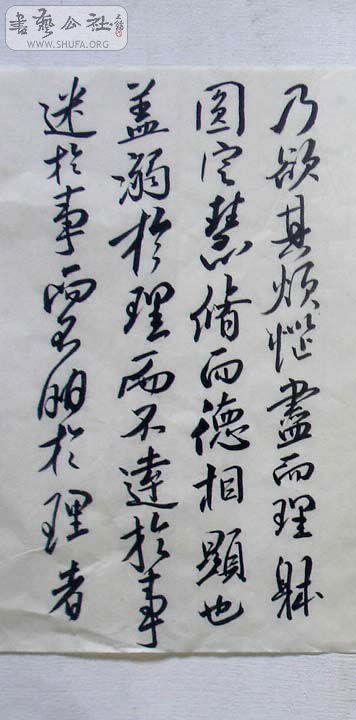 書藝公社
WWW.SHUFA.ORG
乃欲其煩惱盡而理躰
圓定慧脩而德相顯也
盖溺於理而不達於事
迷於事而不明於理者